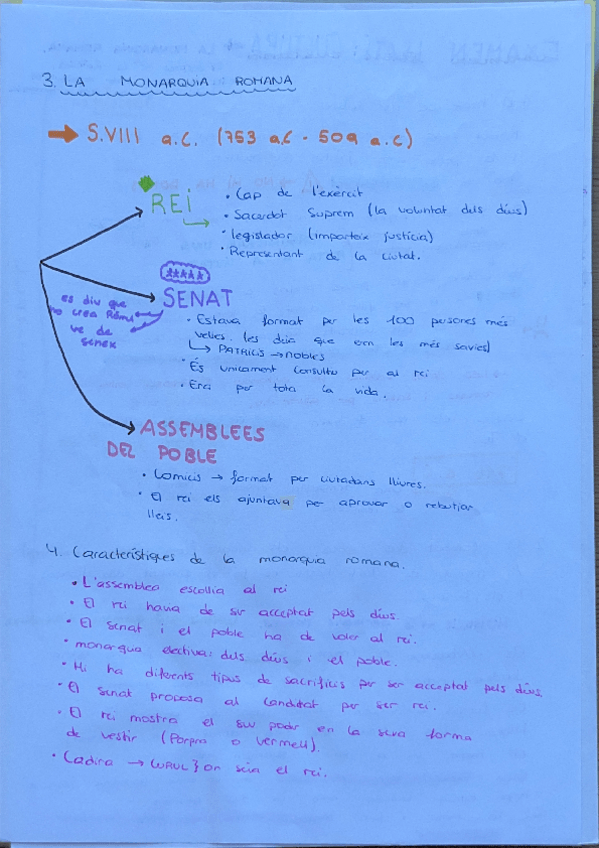 3. LA MONARQUIA ROMANA
→ S.VIII a.C. (753 a.C - 509 a.C)
REI
• Cap de l'exèrcit
• Sacerdot Suprem (la voluntat dels déus)
• legislador (imparteix justícia)
• Representant de la ciutat.
SENAT
es diu que
ho crea Ròmul
ve de
senex
• Estava format per les 100 persones més
velles. (es deia que eren les més savies)
↳ PATRICIS → nobles
• És unicament consultiu per al rei
• Era per tota la vida.
ASSEMBLEES
DEL POBLE
• Comicis → format per ciutadans lliures.
• El rei els ajuntava per aprovar o rebutjar
lleis.
4. Característiques de la monarquia romana.
• L'assemblea escollia al rei
• El rei havia de ser acceptat pels déus.
• El senat i el poble ha de voler al rei.
• monarquia electiva: dels déus i el poble.
• Hi ha diferents tipus de sacrificis per ser acceptat pels déus.
• El senat proposa al candidat per ser rei.
• El rei mostra el seu poder en la seva forma
de vestir (Porpra o vermell).
• Cadira → CURUL } on seia el rei.